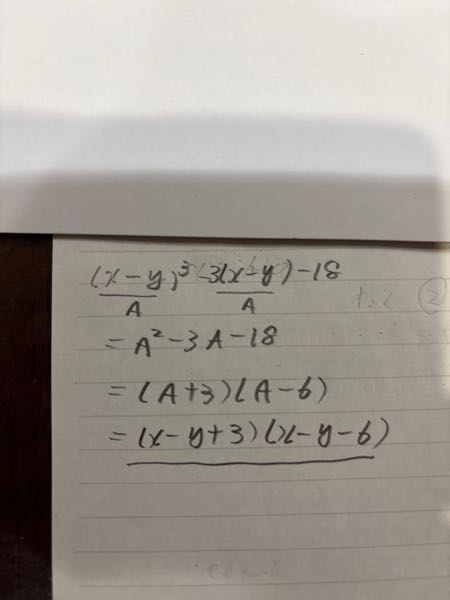 (x-y)³-3(x-y)-18
A A
=A²-3A-18
=(A+3)(A-6)
=(x-y+3)(x-y-6)